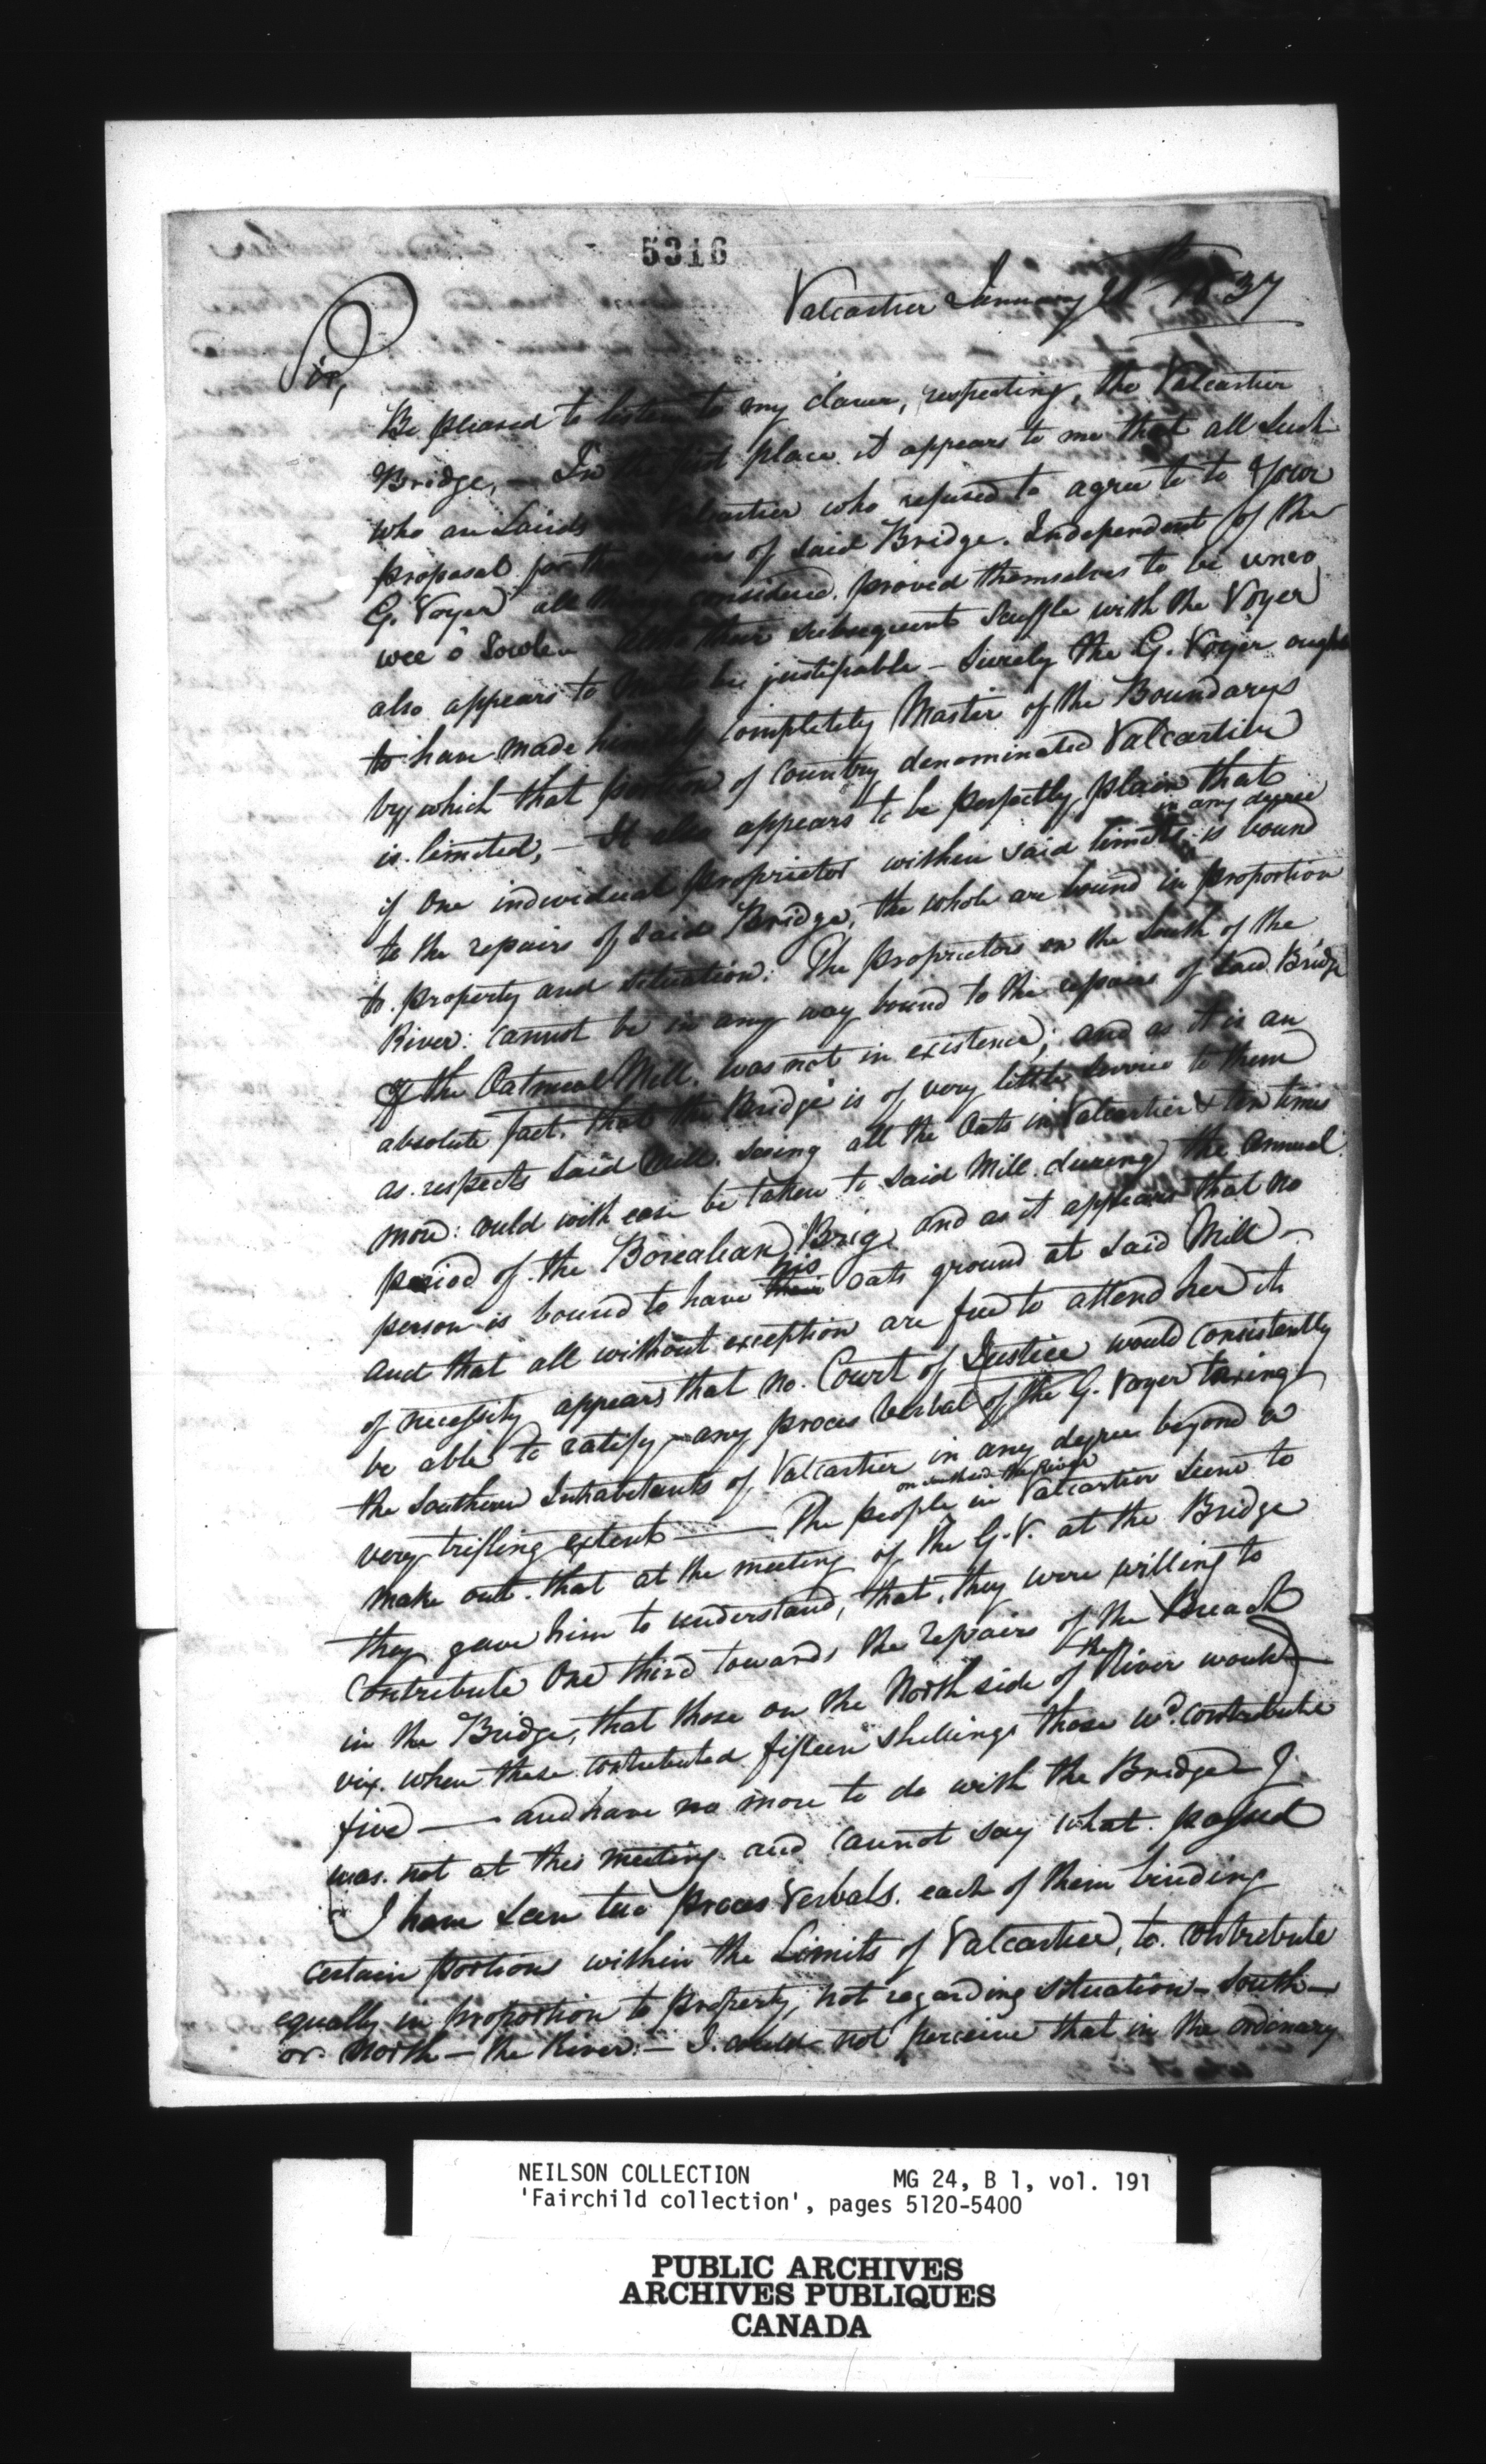 5316
Valcartier January 21th 1837
Sir,
Be pleased to listen to my claver, respecting, the Valcartier
Bridge, — In the first place it appears to me that all such
who are Lairds in Valcartier who refused to agree to to Your
proposal for the repairs of said Bridge. Independent of the
G. Voyer all things considered. proved themselves to be unco
wee o' Sowle altho their subsequent scuffle with the Voyer
also appears to me to be justifiable — Surely the G. Voyer ought
to have made himself completely Master of the Boundarys
by which that portion of Country denominated Valcartier
is limited, — It also appears to be perfectly plain that
if One individual proprietor within said limits in any degree is bound
to the repairs of said Bridge, the whole are bound in proportion
to property and situation. The proprietors on the South of the
River: cannot be in any way bound to the repairs of said Bridge
If the Oatmeal Mill. was not in existence; and as it is an
absolute fact. that the Bridge is of very little service to them
as respects said Mill. seeing all the Oats in Valcartier & ten times
more: could with ease be taken to said Mill. during the annual
period of the Borealean Brig, and as it appears that no
person is bound to have their his oats ground at said Mill —
and that all without exception are free to attend her it
of necessity appears that no. Court of Justice would consistently
be able to ratify any proces Verbal of the G. Voyer taxing
the Southern Inhabitants of Valcartier in any degree beyond a
very trifling extent — The people in Valcartier on south side the River seem to
make out. that at the meeting of the G.V. at the Bridge
they gave him to understand, that, they were willing to
Contribute One third towards the repairs of the Breach
in the Bridge, that those on the North side of the River would
viz. when these contributed fifteen shillings those wd. contribute
five — and have no more to do with the Bridge I
was. not at this meeting and cannot say what. passed
I have seen two proces Verbals. each of them binding
certain portions within the Limits of Valcartier, to contribute
equally in proportion to property, not regarding situation — South —
or North — the River — I could not perceive that in the ordinary
NEILSON COLLECTION MG 24, B 1, vol. 191
'Fairchild collection', pages 5120-5400
PUBLIC ARCHIVES
ARCHIVES PUBLIQUES
CANADA